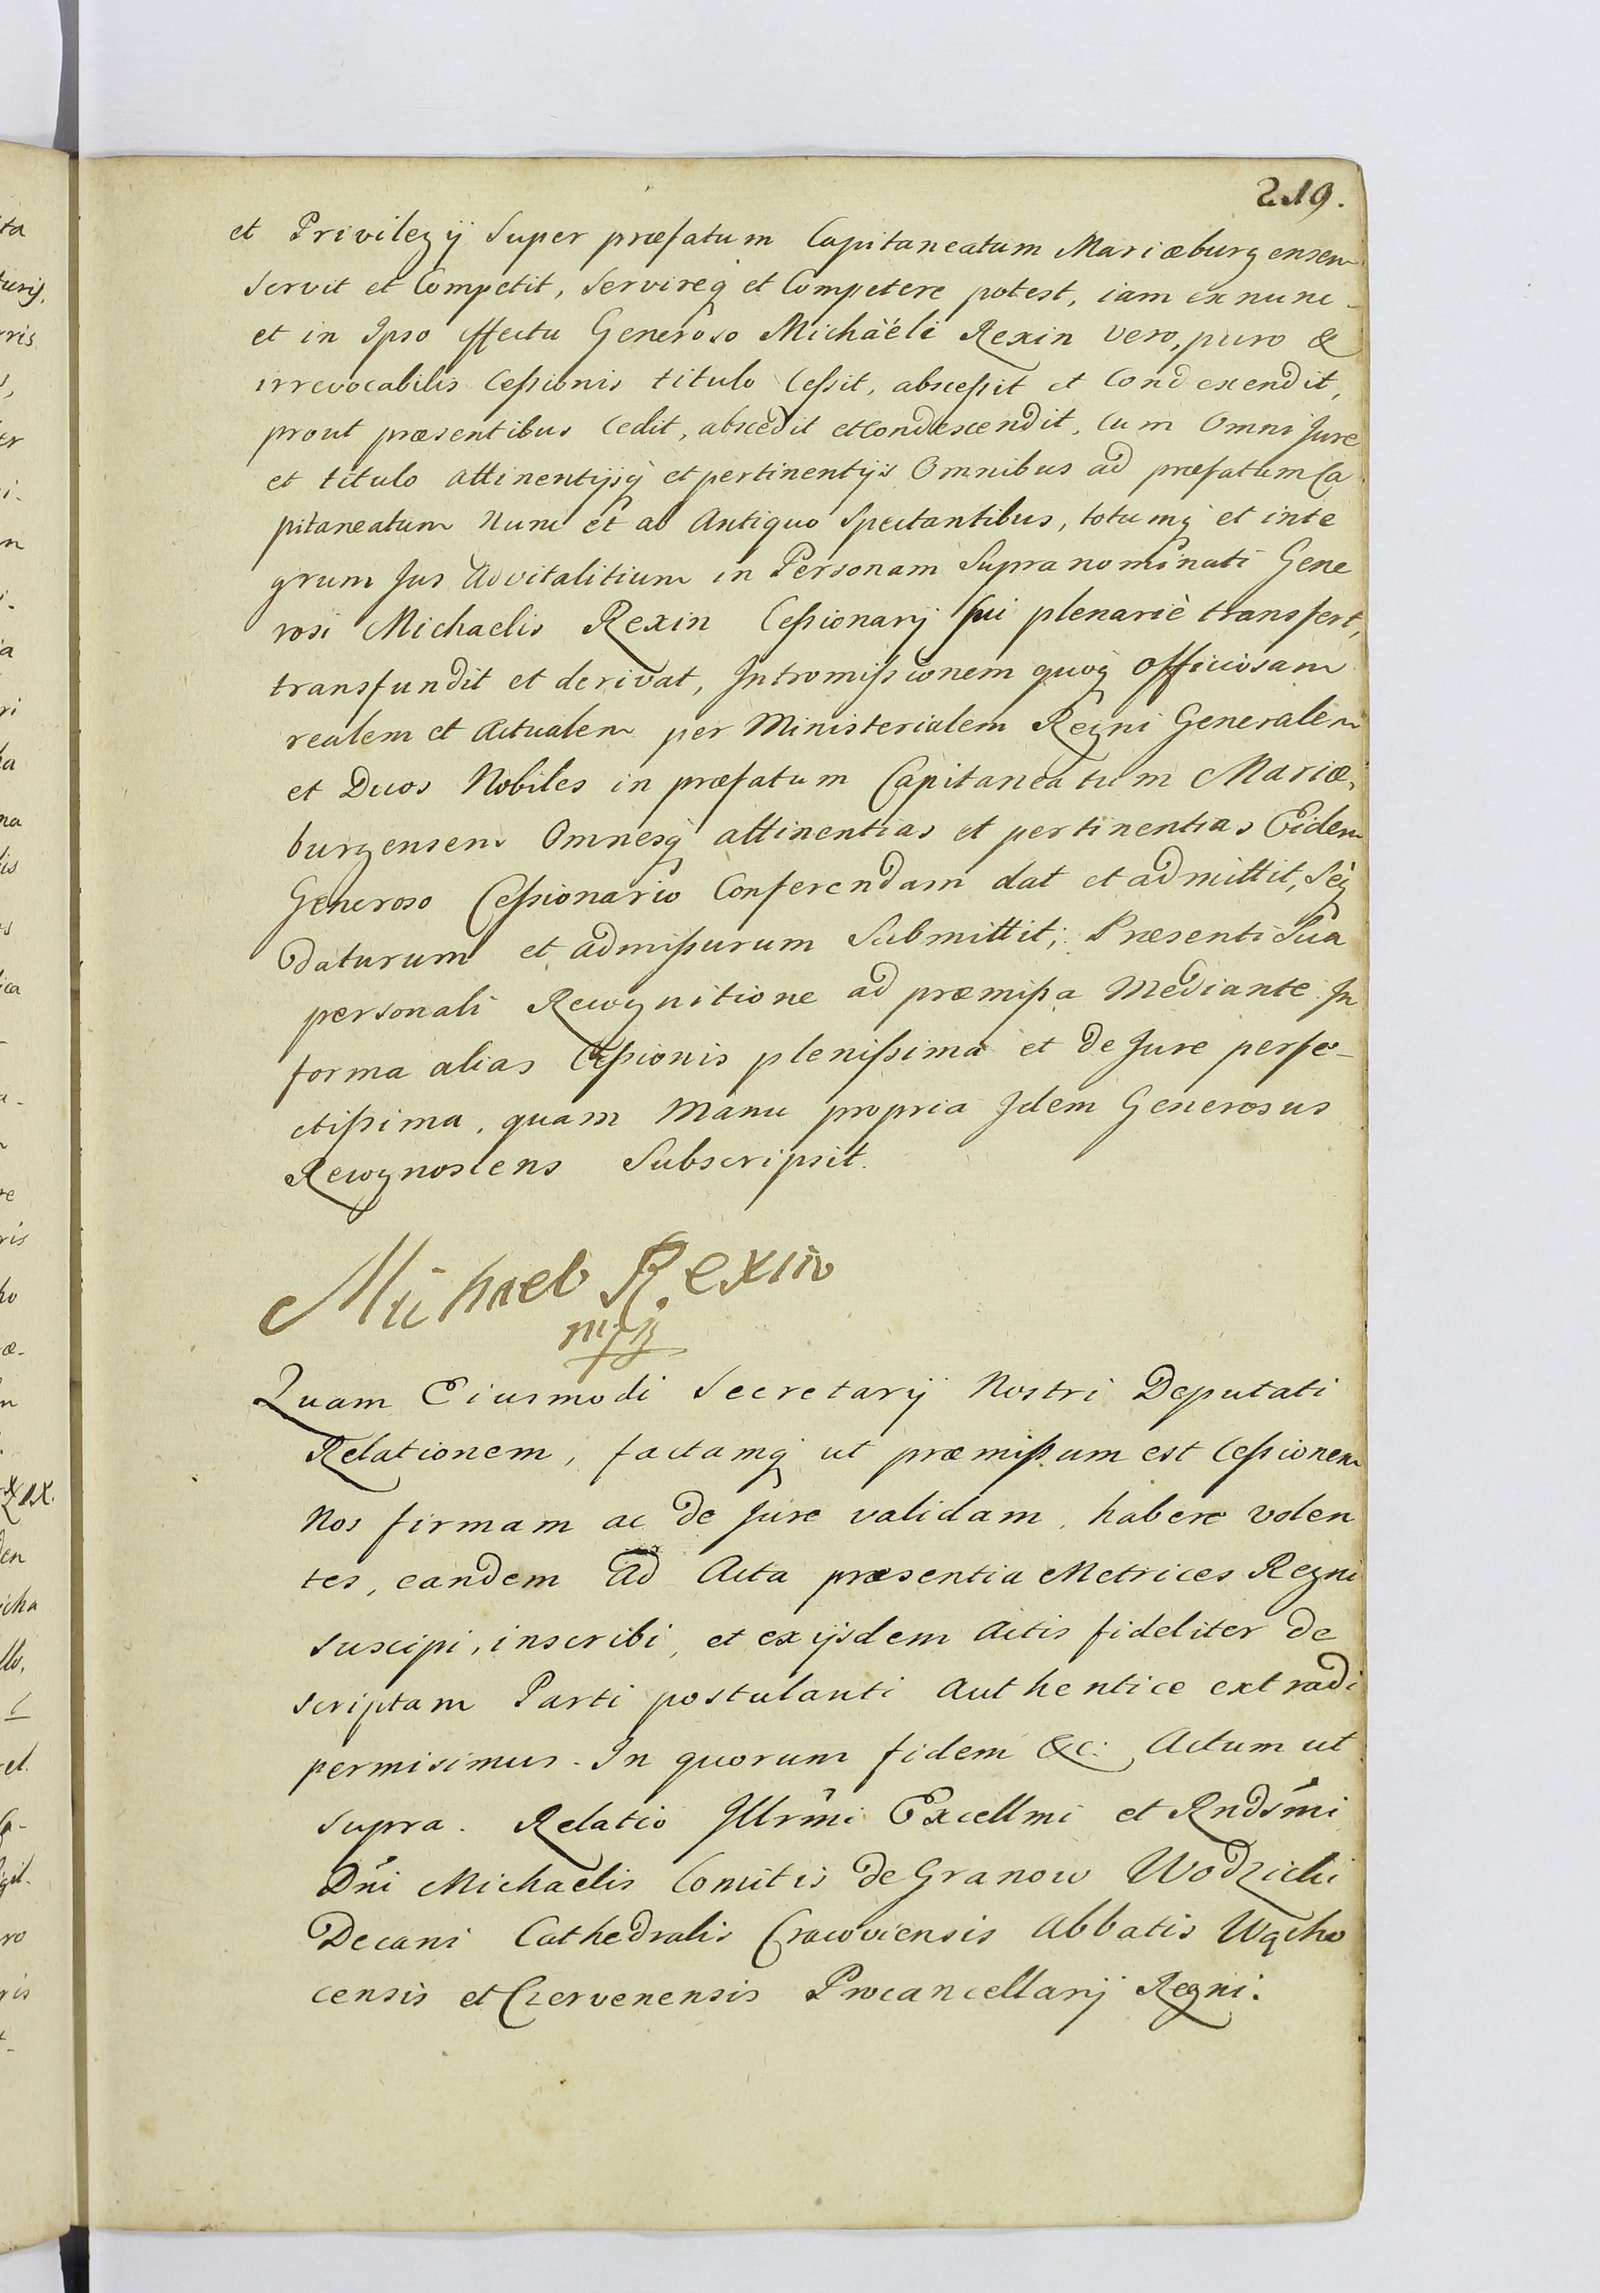 219.
et Privilegÿ Super præfatum Capitaneatum Mariæburgensem
servit et Competit, servireq et Competere potest, iam ex nunc
et in Ipso effectu Generoso Michaëli Rexin vero, puro &
irrevocabilis Cessionis titulo Cessit, abscessit et Condescendit,
prout præsentibus Cedit, abscedit et Condescendit, Cum Omni Jure
et titulo attinentijsq et pertinentijs Omnibus ad præfatum Ca
pitaneatum Nunc et ab Antiquo Spectantibus, totumq et inte
grum Jus Advitalitium in Personam Supranominati Gene
rosi Michaelis Rexin Cessionarij sui plenariè transfert,
transfundit et derivat, Intromissionem quoq officiosam
realem et Actualem per Ministerialem Regni Generalem
et Duos Nobiles in præfatum Capitaneatum Mariæ
burgensem Omnesq attinentias et pertinentias Eidem
Generoso Cessionario Conferendam dat et admittit, seq
daturum et admissurum Submittit; Præsenti Sua
personali Recognitione ad præmissa Mediante. In
forma alias Cessionis plenissima et de Jure perfe-
ctissima, quam Manu propria Idem Generosus
Recognoscens Subscripsit.
Michael Rexin
mp
Quam Eiusmodi Secretarÿ Nostri Deputati
Relationem, factamq ut præmissum est Cessionem
Nos firmam ac de Jure validam habere volen
tes, eandem Ad Acta præsentia Metrices Regni
suscipi, inscribi, et ex ijsdem Actis fideliter de
scriptam Parti postulanti Authentice extradi
permisimus. In quorum fidem &c. Actum ut
supra. Relatio Illrmi Excellmi et Rndsmi
Dni Michaelis Comitis de Granow Wodzicki
Decani Cathedralis Cracoviensis Abbatis Wącho
censis et Czervenensis Procancellarij Regni.